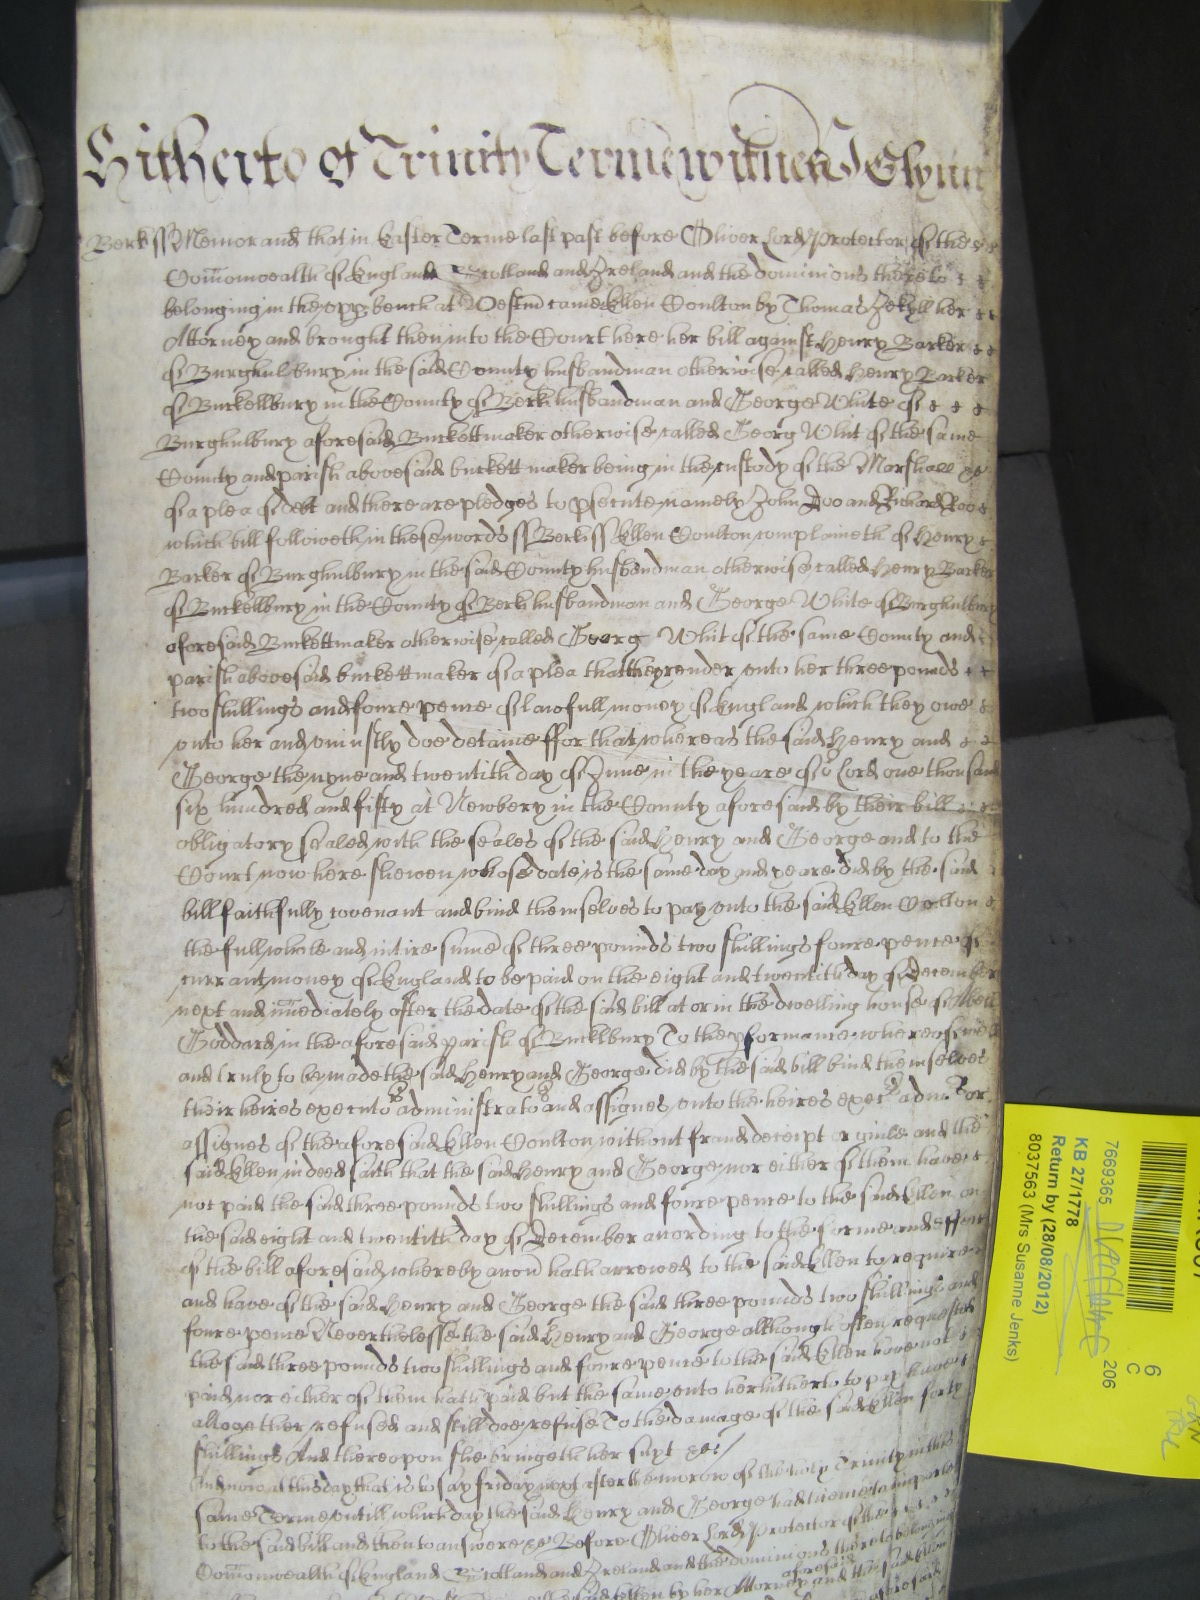 Hitherto of Trinity Terme witnes J Glynn
Berk ss Memorand that in Easter Terme last past before Oliver Lord Protector of the
Comonwealth of England Scotland and Ireland and the dominions thereto
belonging in the upp bench at Westm came Ellen Coulton by Thomas Jekyll her
Attorney and brought then into the Court here her bill against Henry Barker
of Burghulbury in the said County husbandman otherwise called Henry Barker
of Buckellbury in the County of Berk husbandman and George White of
Burghulbury aforesaid Buckettmaker otherwise called Georg Whit of the same
County and parish abovesaid buckett maker being in the custody of the Marshall &c
of a plea of debt and there are pledges to psecute namely John Doo and Richard Roo
which bill followeth in these words ss Berk ss Ellen Coulton complaineth of Henry
Barker of Burghulbury in the said County husbandman otherwise called Henry Barker
of Buckellbury in the County of Berk husbandman and George White of Burghulbury
aforesaid Buckettmaker otherwise called Georg Whit of the same County and
parish abovesaid buckettmaker of a plea that they render unto her three pounds
two shillings and foure pence of lawfull money of England which they owe
unto her and uniustly doe detaine ffor that whereas the said Henry and
George the nyne and twentith day of June in the yeare of or Lord one thousand
six hundred and fifty at Newbery in the County aforesaid by their bill
obligatory sealed with the seales of the said Henry and George and to the
Court now here shewen whose date is the same day and yeare did by the said
bill faithfully covenant and bind themselves to pay unto the said Ellen Coulton
the full whole and intire sume of three pounds two shillings foure pence of
currant money of England to be paid on the eight and twentith day of December
next and imediately after the date of the said bill at or in the dwelling house of Abell
Goddard in the aforesaid parish of Bucklbury To the pformance whereof well
and truly to be made the said Henry and George did by the said bill bind themselves
their heires executors administrators and assignes unto the heires execrs adm or
assignes of the aforesaid Ellen Coulton without fraud deceipt or guile and the
said Ellen indeed saith that the said Henry and George nor either of them have
not paid the said three pounds two shillings and foure pence to the said Ellen on
the said eight and twentith day of December according to the forme and effect
of the bill aforesaid whereby accon hath accrewed to the said Ellen to require
and have of the said Henry and George the said three pounds two shillings and
foure pence Neverthelesse the said Henry and George although often requested
the said three pounds two shillings and foure pence to the said Ellen have not
paid nor either of them hath paid but the same unto her hitherto to pay have
altogether refused and still doe refuse To the damage of the said Ellen forty
shillings And thereupon she bringeth her suyt &c /
And now at this day that is to say friday next after the morow of the holy Trinity in this
same Terme untill which day the said Henry and George had theme to imparle
to the said bill and then to answere &c Before Oliver Lord Protector of the
Comonwealth of England Scotland and Ireland and the dominions thereto belonging
aforesaid
the said Ellen by her Attorney and the said
7669365
KB 27/1778
Return by (28/08/2012)
8037563 (Mrs Susanne Jenks)
206
6
C